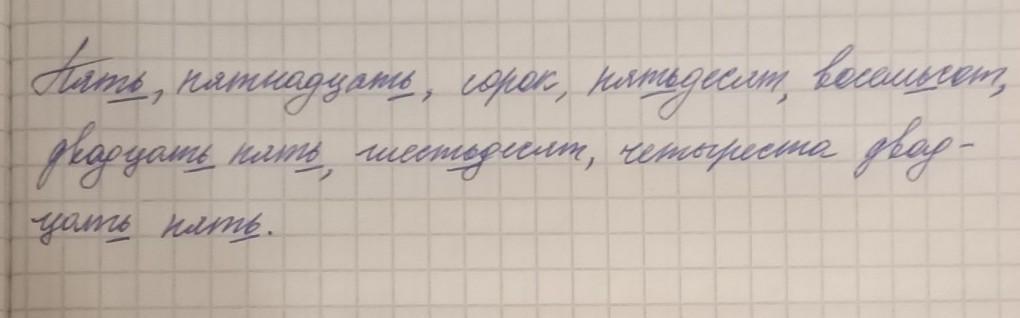 Пять, пятнадцать, сорок, пятьдесят, восемьсот,
двадцать пять, шестьдесят, четыреста двад-
цать пять.